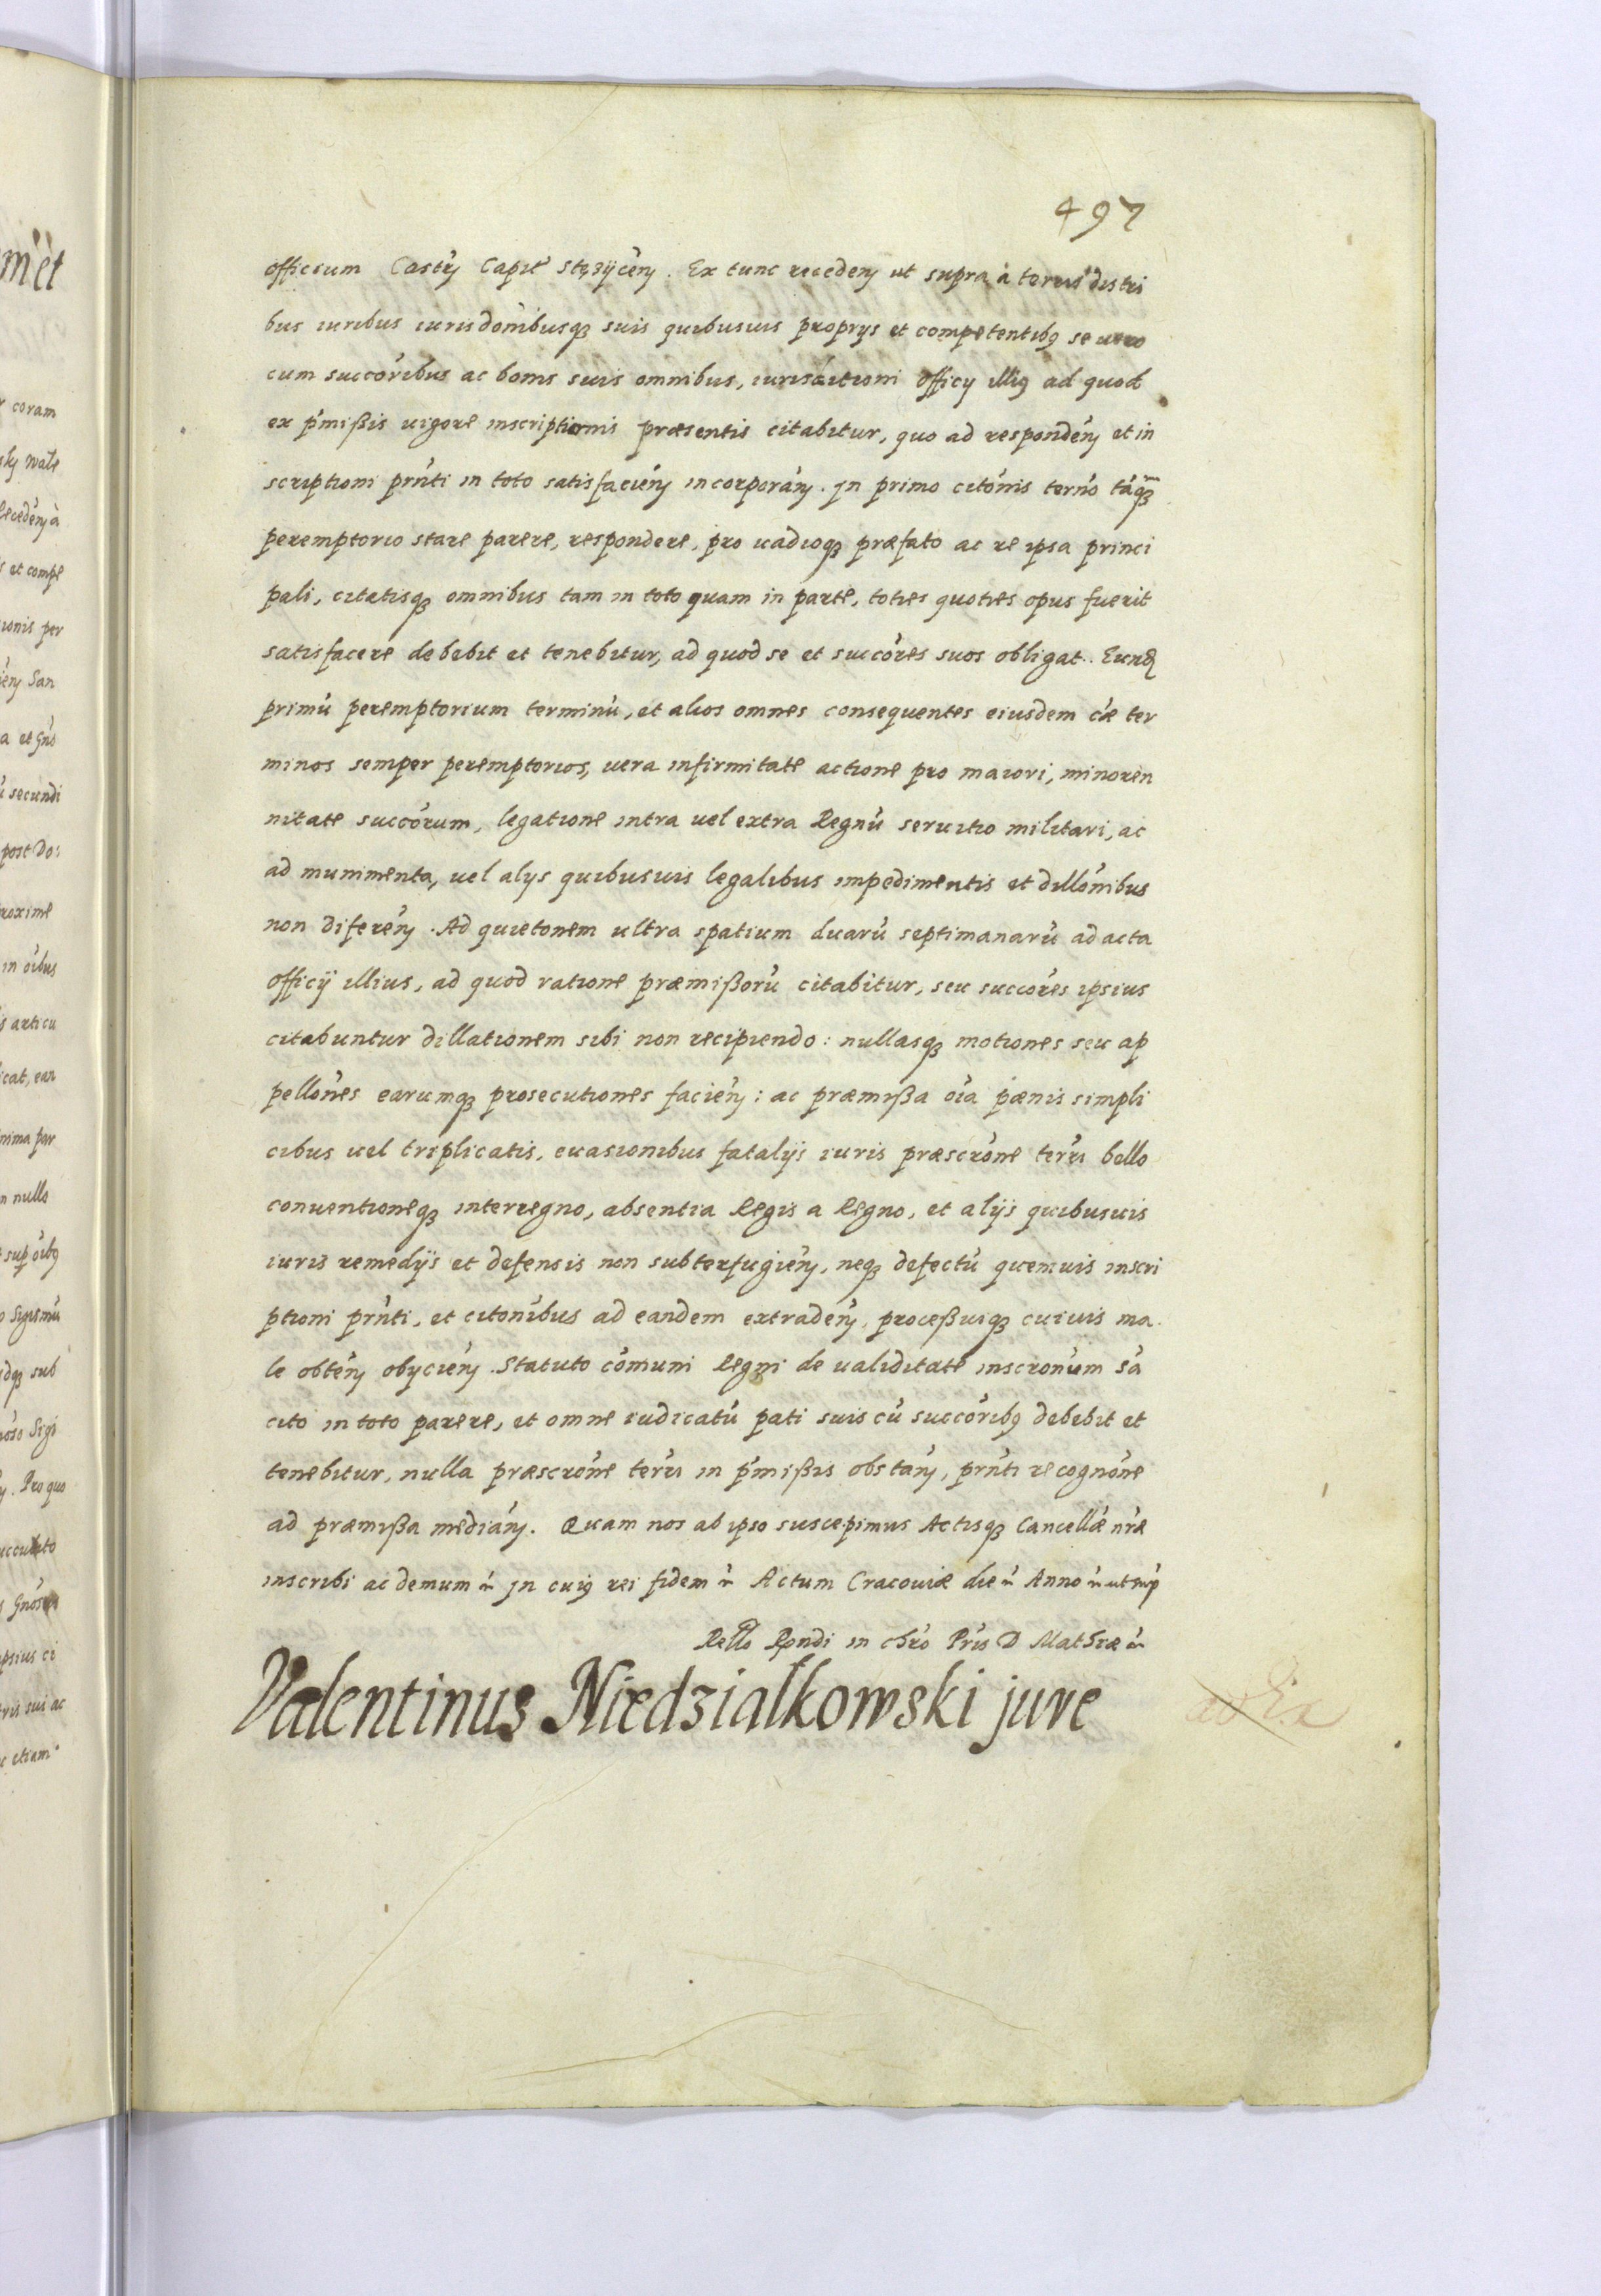 497
officium Castrj Capit Stęzijcen̄. Ex tunc receden̄ ut supra à terris distri
bus iuribus iurisdōnibusq3 suis quibusuis proprys et competentibq se uero
cum succōribus ac bonis suis omnibus, iurisdictioni officy illiq ad quod
ex p̄mißis uigore inscriptionis præsentis citabitur, quo ad responden̄ et in
scriptioni prn̄ti in toto satisfacien̄ incorporan̄. Jn primo citōnis termō tāq3
peremptorio stare parere, respondere, pro uadioq3 præfato ac re ipsa princi
pali, citatisq3 omnibus tam in toto quam in parte, toties quoties opus fuerit
satisfacere debebit et tenebitur, ad quod se et succōres suos obligat. Eund
primū peremptorium terminū, et alios omnes consequentes eiusdem cāe ter
minos semper peremptorios, uera infirmitate actione pro maiori, minoren
nitate succōrum, legatione intra uel extra Regnū seruitio militari, ac
ad munimenta, uel alys quibusuis legalibus impedimentis et dillōnibus
non diferen̄. Ad quietonem ultra spatium duarū septimanarū ad acta
officij illius, ad quod ratione præmißorū citabitur, seu succōres ipsius
citabuntur dillationem sibi non recipiendo: nullasq3 motiones seu ap
pellōnes earumq3 prosecutiones facien̄: ac præmißa ōia pænis simpli
cibus uel triplicatis, euasionibus fatalijs iuris præscrōne terr̄i bello
conuentioneq3 interregno, absentia Regis a Regno, et alijs quibusuis
iuris remedijs et defensis non subterfugien̄, neq3 defectū quemuis inscri
ptioni prn̄ti, et citōnibus ad eandem extraden̄, proceßuiq3 cuiuis ma
le obten̄ obycien̄. Statuto cōmuni Regni de ualiditate inscronum sā
cito in toto parere, et omne iudicatū pati suis cū succōribq debebit et
tenebitur, nulla præscrōne terr̄i in p̄mißis obstan̄, prn̄ti recognōne
ad præmißa median̄. Quam nos ab ipso suscepimus Actisq3 Cancellāe nrāe
inscribi ac demum etc Jn cuiq rei fidem etc Actum Cracouiæ die etc Anno etc ut sup
Rello Rondi in chrō Pris D Mathiæ etc
Valentinus Niedzialkowski jure